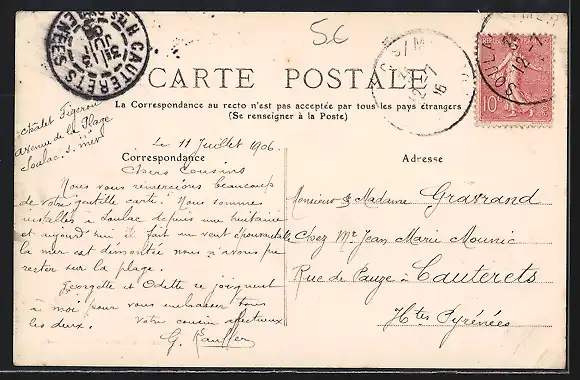 5c
CARTE POSTALE
La Correspondance au recto n'est pas acceptée par tous les pays étrangers
(Se renseigner à la Poste)
Chalet Figerou
avenue de la Plage
Soulac. s. mer
Le 11 Juillet 1906.
Correspondance
Chers Cousins
Nous vous remercions beaucoup
de votre gentille carte. Nous sommes
installés à Soulac depuis une huitaine
et aujourd'hui il fait un vent épouvantable
la mer est démontée nous n'avons pu
rester sur la plage.
Georgette et Odette se joignent
à moi pour vous embrasser tous
les deux.
Votre cousin affectueux
G.
Adresse
Monsieur & Madame Grarrand
Chez Mr Jean Marie Mounic
Rue de Pauze à Cauterets
Htes Pyrénées
CAUTERETS
SOULAC
10c